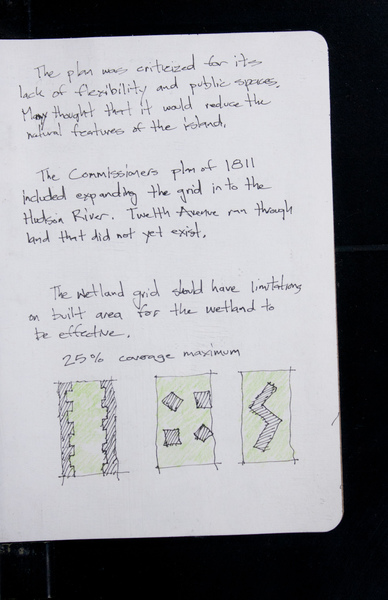 The plan was criticized for its
lack of flexibility and public spaces.
Many thought that it would reduce the
natural features of the island.
The Commissioners plan of 1811
included expanding the grid in to the
Hudson River. Twelth Avenue ran through
land that did not yet exist.
The wetland grid should have limitations
on built area for the wetland to
be effective.
25% coverage maximum